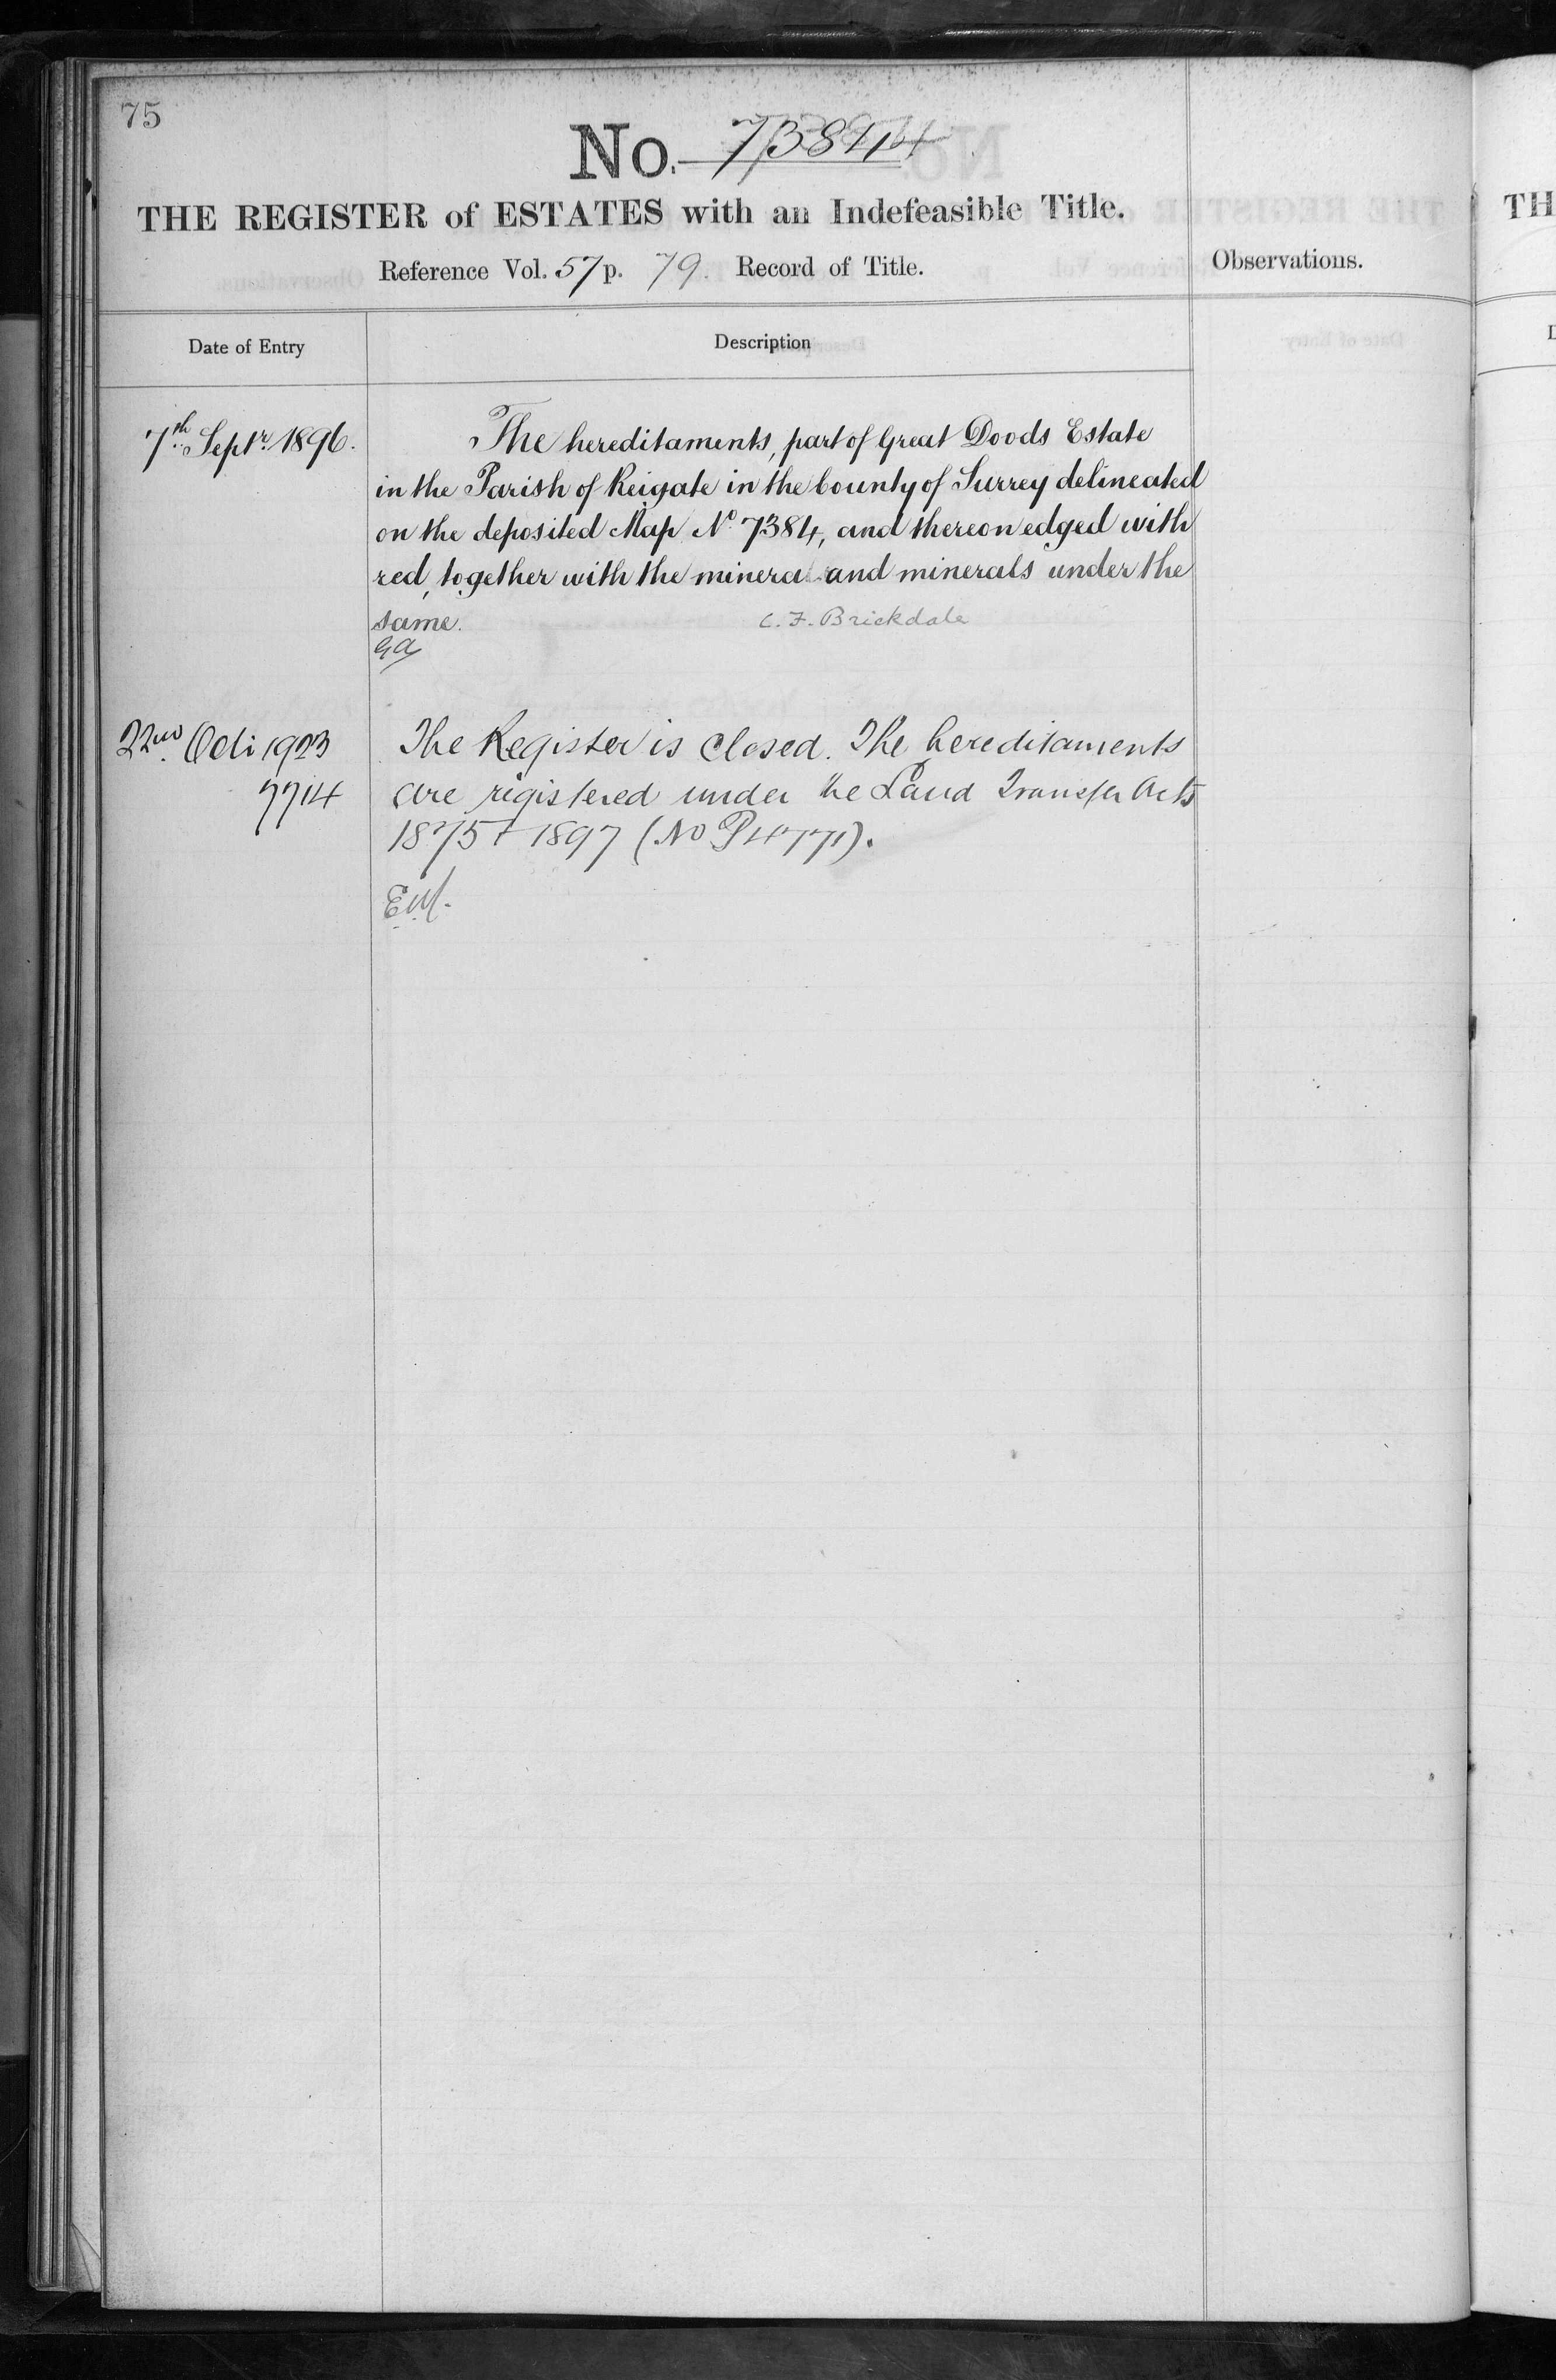 75
No. 7384
THE REGISTER of ESTATES with an Indefeasible Title.
Reference Vol. 57 p. 79. Record of Title.
Observations.
Date of Entry
Description
7th Septr. 1896.
The hereditaments, part of Great Doods Estate
in the Parish of Reigate in the County of Surrey delineated
on the deposited Map No. 7384, and thereon edged with
red, together with the minera and minerals under the
same.
C. F. Brickdale
GA
22nd Oct 1923
7714
The Register is closed. The hereditaments
are registered under the Land Transfer Acts
1875 + 1897 (No P4771).
TH